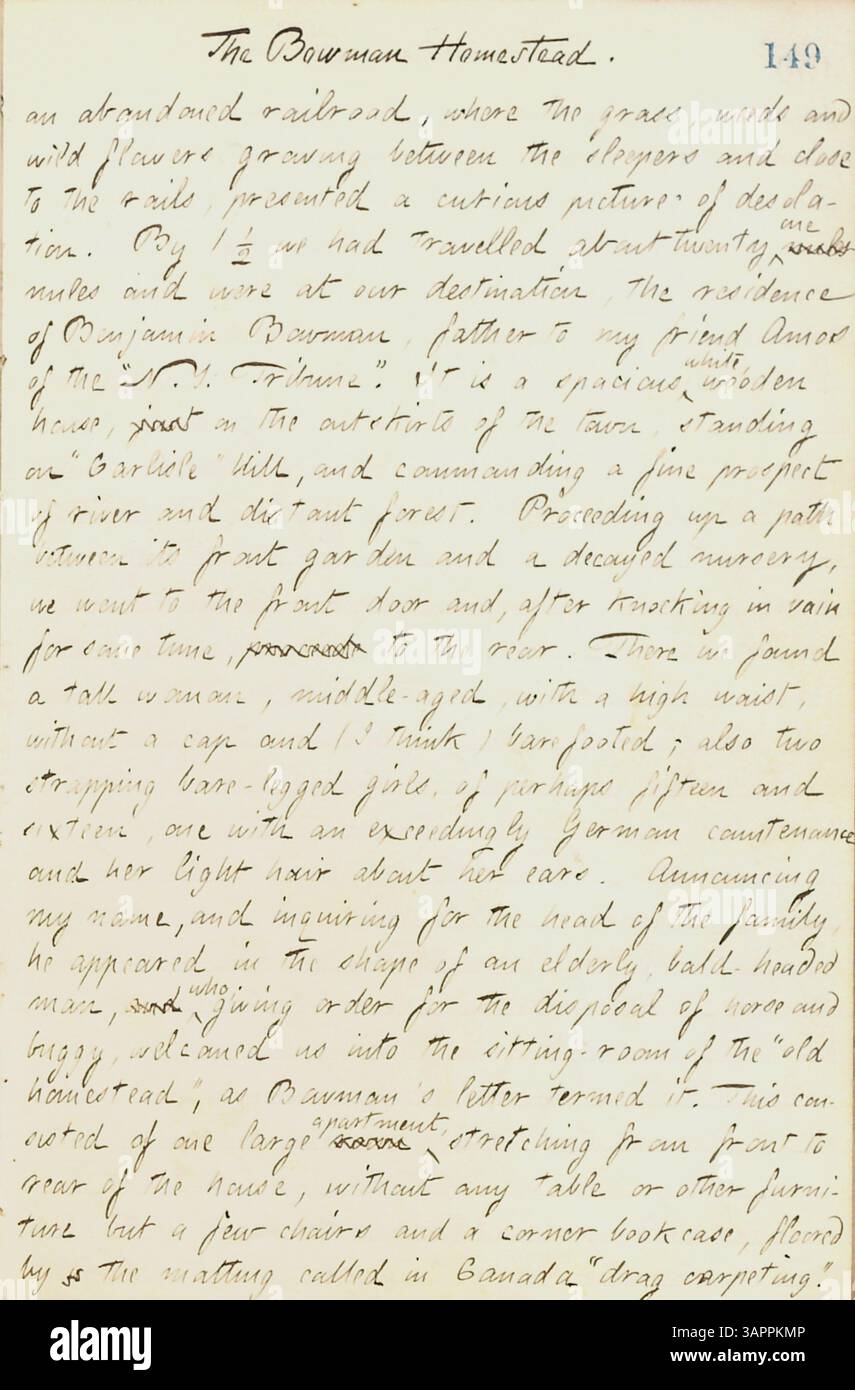 The Bowman Homestead.
149
an abandoned railroad, where the grass, weeds and
wild flowers growing between the sleepers and close
to the rails, presented a curious picture of desola-
tion. By 1 1/2 we had travelled about twenty one miles
miles and were at our destination, the residence
of Benjamin Bowman, father to my friend Amos
of the "N.Y. Tribune". It is a spacious, white wooden
house, just on the outskirts of the town, standing
on "Carlisle" Hill, and commanding a fine prospect
of river and distant forest. Proceeding up a path
between its front garden and a decayed nursery,
we went to the front door and, after knocking in vain
for some time, proceeded to the rear. There we found
a tall woman, middle-aged, with a high waist,
without a cap and (I think) barefooted; also two
strapping bare-legged girls, of perhaps fifteen and
sixteen, one with an exceedingly German countenance
and her light hair about her ears. Announcing
my name, and inquiring for the head of the family,
he appeared in the shape of an elderly, bald-headed
man, and who giving order for the disposal of horse and
buggy, welcomed us into the sitting-room of the "old
homestead", as Bowman's letter termed it. This con-
sisted of one large room apartment, stretching from front to
rear of the house, without any table or other furni-
ture but a few chairs and a corner bookcase, floored
by the matting called in Canada "drag carpeting."
alamy
Image ID: 3APPKMP
www.alamy.com